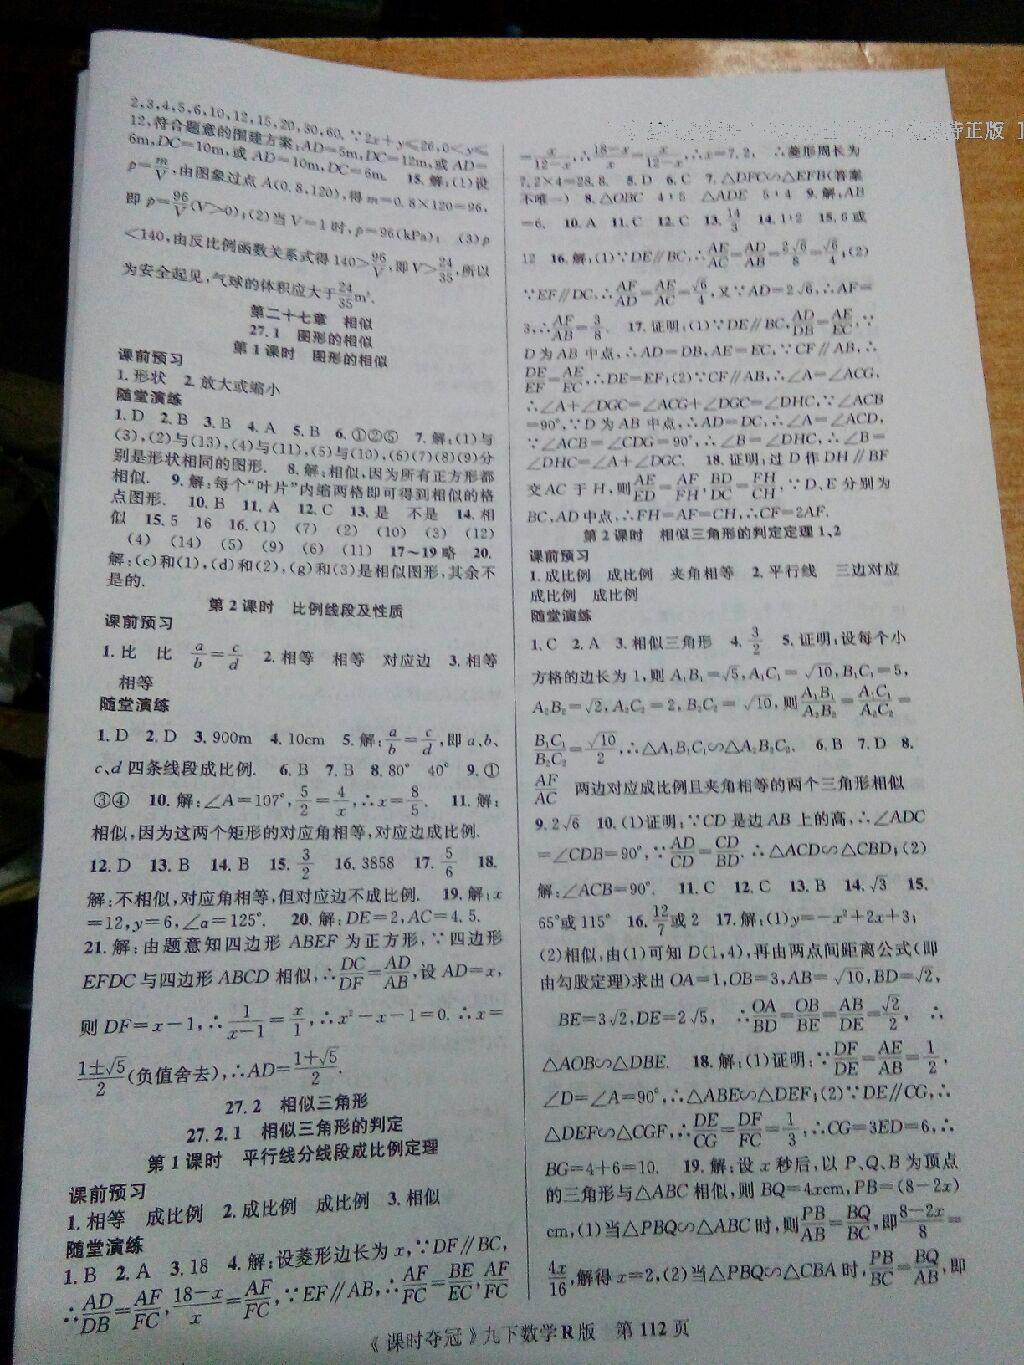 2,3,4,5,6,10,12,15,20,30,60. ∵2x+y≤26,0<y≤
12,符合题意的围建方案:AD=5m,DC=12m,或AD=
6m,DC=10m,或AD=10m,DC=6m. 15.解:(1)设
p=m/V,由图象过点A(0.8,120),得m=0.8×120=96,
即p=96/V(V>0);(2)当V=1时,p=96(kPa); (3)p
<140,由反比例函数关系式得140>96/V,即V>24/35,所以
为安全起见,气球的体积应大于24/35m³.
第二十七章 相似
27.1 图形的相似
第1课时 图形的相似
课前预习
1.形状 2.放大或缩小
随堂演练
1.D 2.B 3.B 4.A 5.B 6.①②⑤ 7.解:(1)与
(3),(2)与(13),(4)与(11),(5)与(10),(6)(7)(8)(9)分
别是形状相同的图形. 8.解:相似,因为所有正方形都
相似. 9.解:每个“叶片”内缩两格即可得到相似的格
点图形. 10.B 11.A 12.C 13.是 不是 14.相
似 15.5 16 16.(1) (7) (2) (10) (3) (12)
(4) (14) (5) (9) (6) (11) 17~19略 20.
解:(c)和(1),(d)和(2),(g)和(3)是相似图形,其余不
是的.
第2课时 比例线段及性质
课前预习
1.比 比 a/b=c/d 2.相等 相等 对应边 3.相等
相等
随堂演练
1.D 2.D 3.900m 4.10cm 5.解:a/b=c/d,即a、b、
c、d四条线段成比例. 6.B 7.B 8.80° 40° 9.①
③④ 10.解:∠A=107°,5/2=4/x,∴x=8/5. 11.解:
相似,因为这两个矩形的对应角相等,对应边成比例.
12.D 13.B 14.B 15.3/2 16.3858 17.5/6 18.
解:不相似,对应角相等,但对应边不成比例. 19.解:x
=12,y=6,∠α=125°. 20.解:DE=2,AC=4.5.
21.解:由题意知四边形ABEF为正方形,∵四边形
EFDC与四边形ABCD相似,∴DC/DF=AD/AB,设AD=x,
则DF=x-1,∴1/(x-1)=x/1,∴x²-x-1=0.∴x=
(1±√5)/2(负值舍去),∴AD=(1+√5)/2.
27.2 相似三角形
27.2.1 相似三角形的判定
第1课时 平行线分线段成比例定理
课前预习
1.相等 成比例 2.成比例 成比例 3.相似
随堂演练
1.B 2.A 3.18 4.解:设菱形边长为x,∵DF∥BC,
∴AD/DB=AF/FC,(18-x)/x=AF/FC,∵EF∥AB,∴AF/FC=BE/EC,AF/FC
正版
=x/(12-x),∴(18-x)/x=x/(12-x),∴x=7.2, ∴菱形周长为
7.2×4=28.8. 5.D 6.C 7.△DFC∽△EFB(答案
不唯一) 8.△OBC 4:5 △ADE 5:4 9.解,AB
=6. 10.A 11.C 12.C 13.14/3 14.1:2 15.6或
12 16.解:(1)∵DE∥BC,∴AE/AC=AD/AB=2√6/8=√6/4;(2)
∵EF∥DC,∴AF/AD=AE/AC=√6/4,又∵AD=2√6,∴AF=
3,∴AF/AB=3/8. 17.证明:(1)∵DE∥BC,AD/DB=AE/EC,∵
D为AB中点,∴AD=DB,AE=EC,∵CF∥AB,∴
DE/EF=AE/EC,∴DE=EF;(2)∵CF∥AB,∴∠A=∠ACG,
∴∠A+∠DGC=∠ACG+∠DGC=∠DHC,∵∠ACB
=90°,∵D为AB中点,∴AD=DC,∴∠A=∠ACD,
∵∠ACB=∠CDG=90°,∴∠B=∠DHC,∴∠B=
∠DHC=∠A+∠DGC. 18.证明:过D作DH∥BF
交AC于H,则AE/ED=AF/FH,BD/DC=FH/CH,∵D、E分别为
BC,AD中点,∴FH=AF=CH,∴CF=2AF.
第2课时 相似三角形的判定定理1、2
课前预习
1.成比例 成比例 夹角相等 2.平行线 三边对应
成比例 成比例
随堂演练
1.C 2.A 3.相似三角形 4.3/2 5.证明:设每个小
方格的边长为1,则A₁B₁=√5,A₁C₁=√10,B₁C₁=5,
A₂B₂=√2,A₂C₂=2,B₂C₂=√10,则A₁B₁/A₂B₂=A₁C₁/A₂C₂=
B₁C₁/B₂C₂=√10/2,∴△A₁B₁C₁∽△A₂B₂C₂. 6.B 7.D 8.
AF/AC 两边对应成比例且夹角相等的两个三角形相似
9.2√6 10.(1)证明:∵CD是边AB上的高,∴∠ADC
=∠CDB=90°,∵AD/CD=CD/BD.∴△ACD∽△CBD;(2)
解:∠ACB=90°. 11.C 12.C 13.B 14.√3 15.
65°或115° 16.12/7或2 17.解:(1)y=-x²+2x+3;
(2)相似,由(1)可知D(1,4),再由两点间距离公式(即
由勾股定理)求出OA=1,OB=3,AB=√10,BD=√2,
BE=3√2,DE=2√5, ∴OA/BD=OB/BE=AB/DE=√2/2, ∴
△AOB∽△DBE. 18.解:(1)证明:∵DF/DE=AE/AB=1/2,
∠D=∠A=90°,∴△ABE∽△DEF;(2)∵DE∥CG,∴
△DEF∽△CGF,∴DE/CG=DF/FC=1/3,∴CG=3ED=6,∴
BG=4+6=10. 19.解:设x秒后,以P、Q、B为顶点
的三角形与△ABC相似,则BQ=4xcm,PB=(8-2x)
cm,(1)当△PBQ∽△ABC时,则PB/AB=BQ/BC,即(8-2x)/8=
4x/16,解得x=2,(2)当△PBQ∽△CBA时,PB/BC=BQ/AB,即
《课时夺冠》九下数学R版 第112页